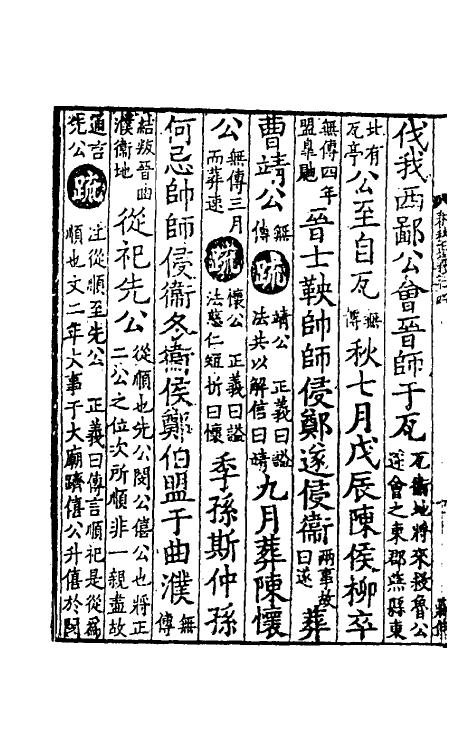 伐我西鄙公會晉師于瓦瓦衞地將來救魯公逆會之東郡燕縣東
北有瓦亭公至自瓦無傳秋七月戊辰陳侯柳卒
無傳四年盟臯鼬晉士鞅帥師侵鄭遂侵衞兩事故曰遂葬
曹靖公無傳疏靖公 正義曰謚法共以解信曰靖九月葬陳懷
公無傳三月而葬速疏懷公 正義曰謚法慈仁短折曰懷季孫斯仲孫
何忌帥師侵衞冬衞侯鄭伯盟于曲濮無傳
結叛晉曲濮衞地從祀先公從順也先公閔公僖公也將正二公之位次所順非一親盡故
通言先公疏注從順至先公 正義曰傳言順祀是從為順也文二年大事于大廟躋僖公升僖於閔